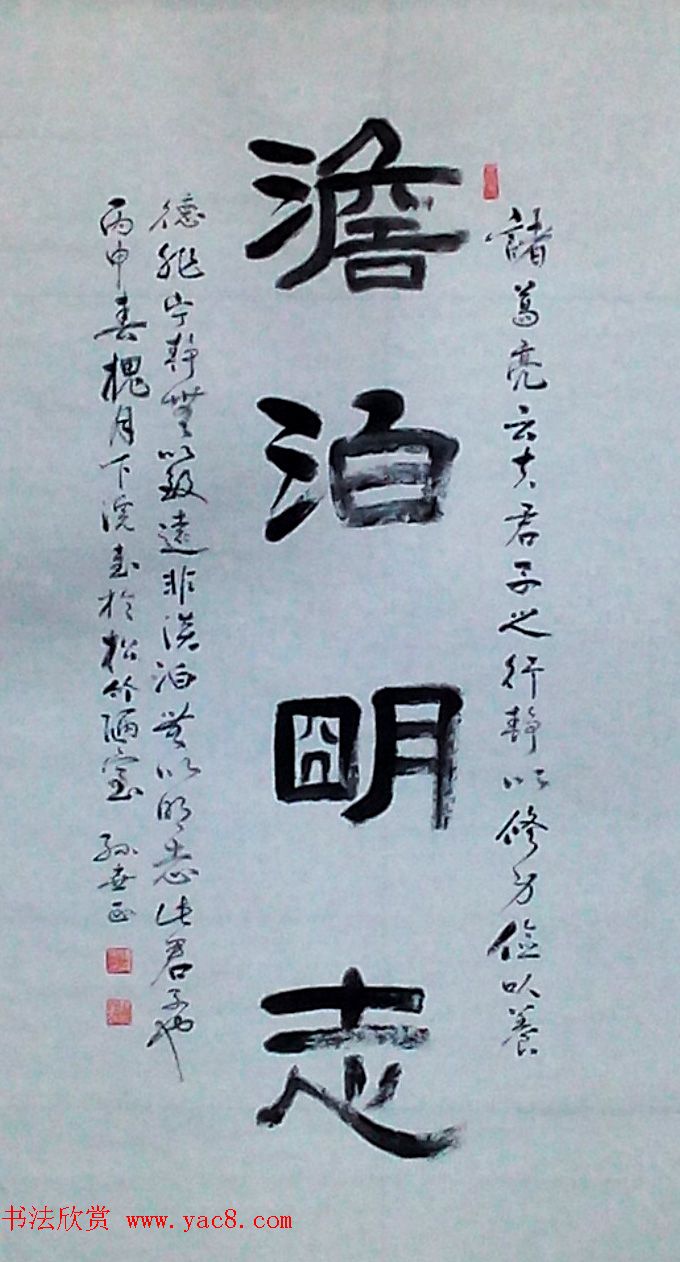 諸葛亮云夫君子之行静以修身俭以養
澹泊朙志
德非宁静無以致遠非淡泊無以明志此君子也
丙申春槐月下浣書於松竹陋室 孫世正
书法欣赏 www.yac8.com